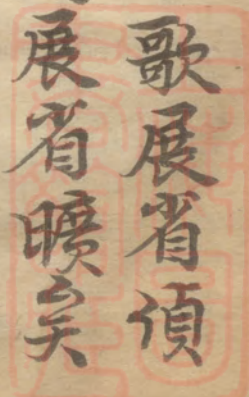 歌展省偵
展省曠矣